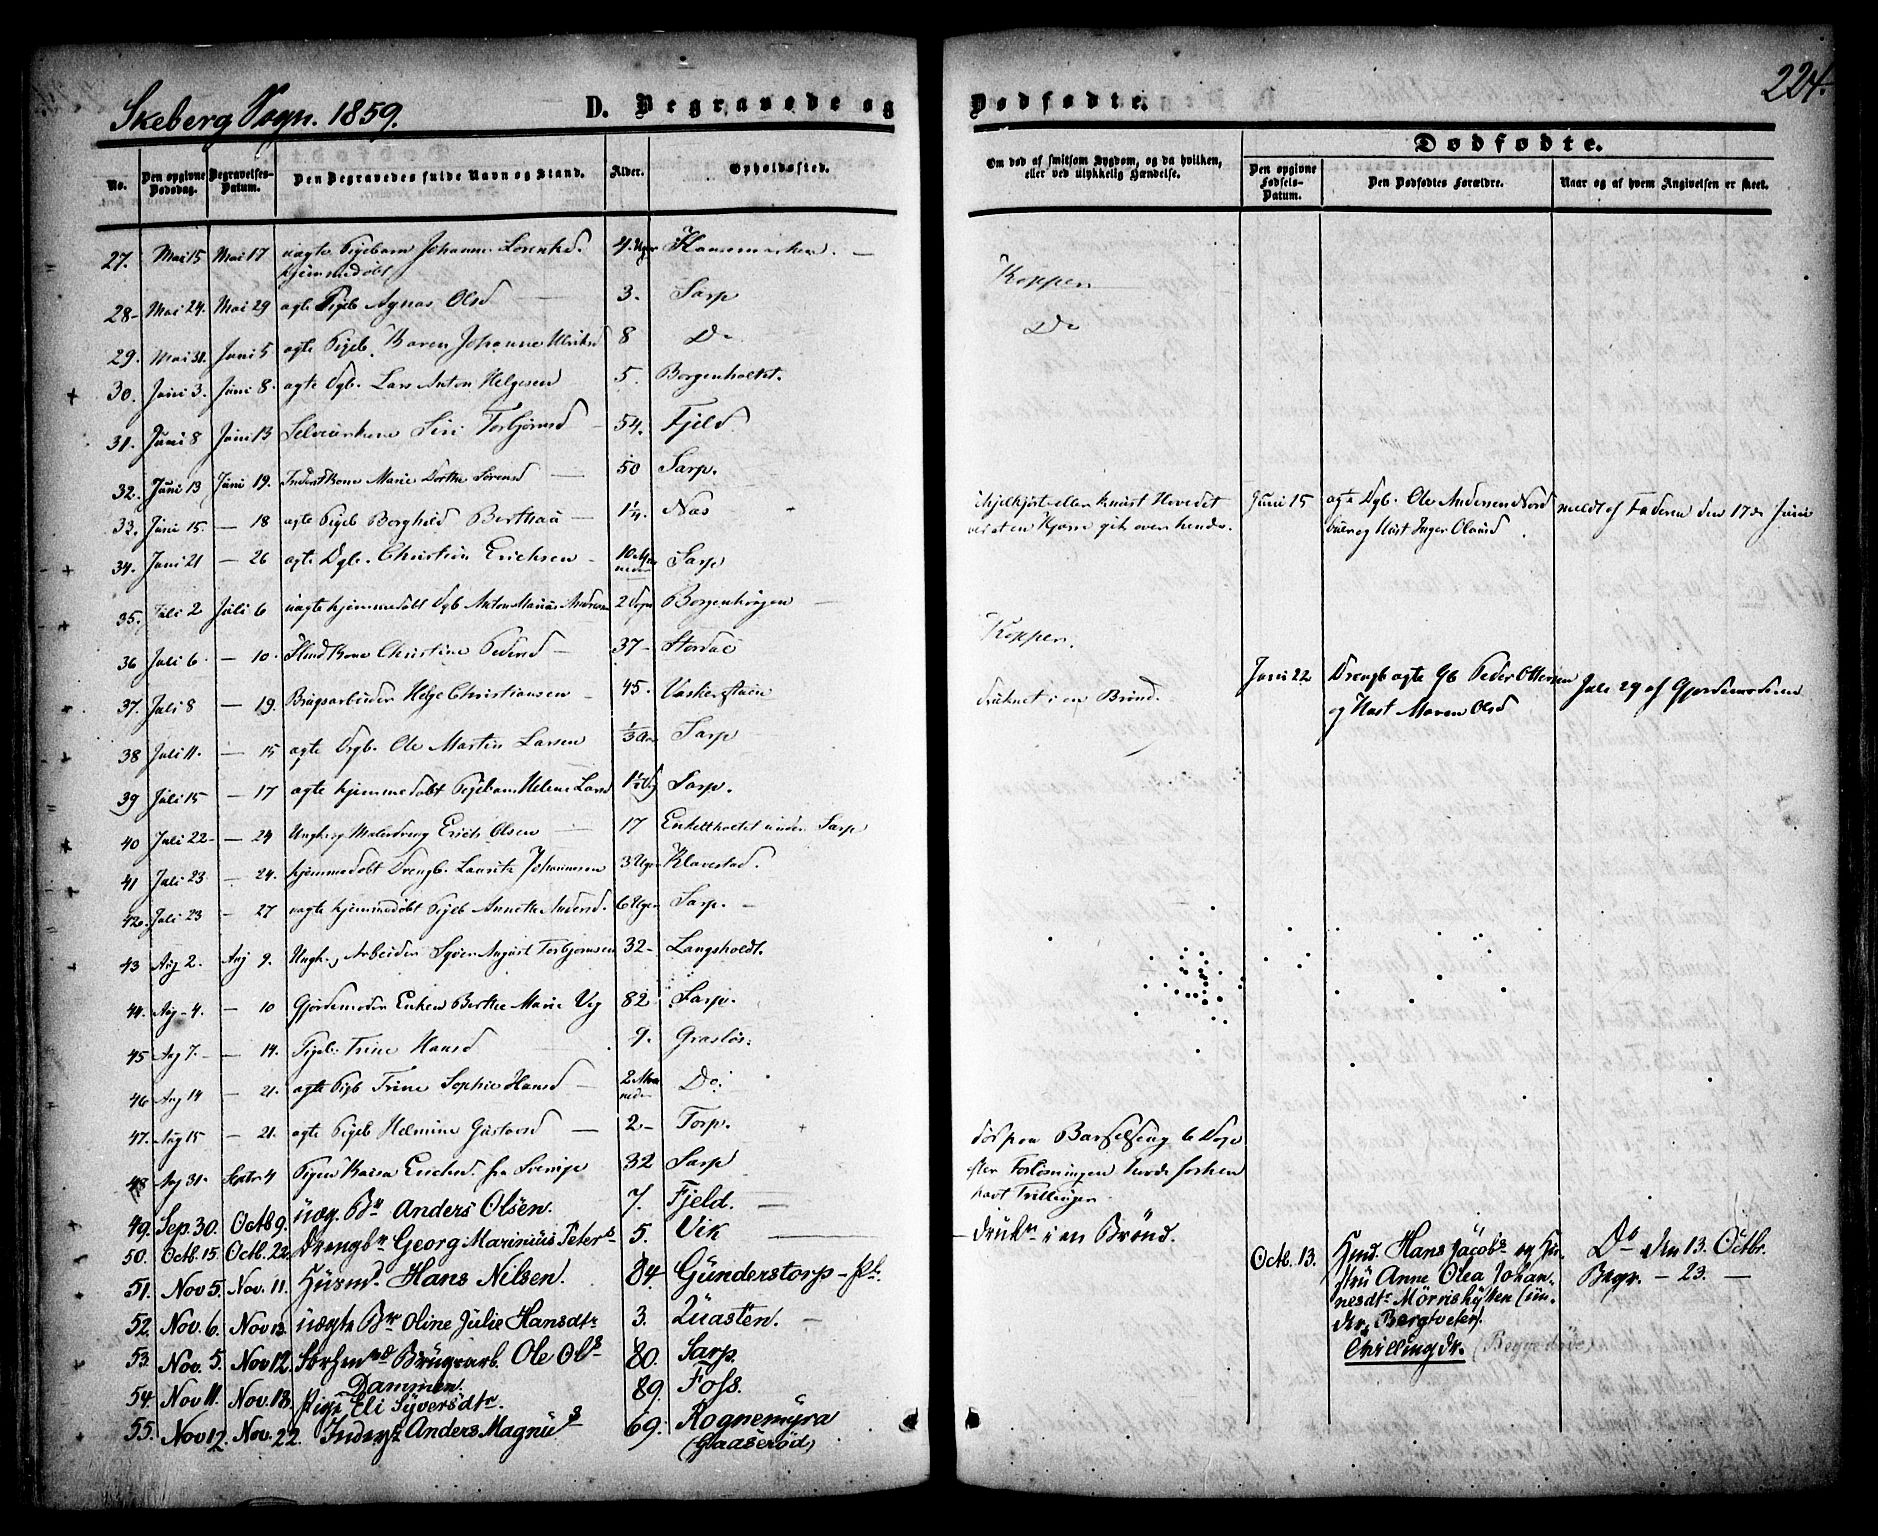 Skeberg Sogn. 1859.
D. Begravede og
Dødfødte.
224.
No.
Den opgivne Dødsdag.
Begravelses-Datum.
Den Begravedes fulde Navn og Stand.
Alder.
Opholdssted.
Om død af smitsom Sygdom, og da hvilken, eller ved ulykkelig Hændelse.
Dødfødte.
Den opgivne Fødsels-Datum.
Den Dødfødtes Forældre.
Naar og af hvem Angivelsen er skeet.
27. Mai 15 Mai 17 uægte Pigebarn Johanne Lorentsd. 4 Uger
hjemmedøbt
28. Mai 24. Mai 29 ægte Pigeb Agnes Olsd 3. Sarp
29. Mai 31. Juni 5 ægte Pigeb. Karen Johanne Ulriksd 8 Do
30. Juni 3. Juni 8. ægte Dgb. Lars Anton Helgesen 5. Borgenholtet.
31. Juni 8 Juni 13 Siri Torbjørnsd 54. Fjeld.
32. Juni 13 Juni 19. Inderstkone Marie Dorthe Sørensd 50 Sarp.
33. Juni 15. — 18 ægte Pigeb Borghild 1¼. Næs
34. Juni 21 — 26 ægte Dgb. Christian Erichsen Sarp
35. Juli 2 Juli 6 uægte hjemmedøbt Dgb Anton Marius Andersen 2 Dage Borgenhougen
36 Juli 6 — 10. Christine Pedersd 37 Stordal
37. Juli 8 — 19. Brugsarbeider Helge Christiansen 45.
38 Juli 11. — 15 ægte Drgb. Ole Martin Larsen Sarp
39 Juli 15 — 17 ægte hjemmedøbt Pigebarn Helene Larsd Sarp.
40 Juli 22 — 24 Ungk og Malerdreng Erich Olsen 17 Enkeltholtet under Sarp
41 Juli 23 — 24. hjemmedøbt Drengb. Lauritz Johannesen 3 Uger Klavestad.
42. Juli 23 — 27 uægte hjemmedøbt Pigeb Annette Andersd. 6 Uger Sarp.
43 Aug 2. Aug 9. Ungk., Arbeider Syver August Torbjørnsen 32 Langsholdt.
44. Aug 4. — 10 Gjordemoder Enken Berthe Marie Vig 82 Sarp.
45 Aug 7. — 14. Pigeb. Trine Hansd 9. Grasløs.
46 Aug 14 — 21. ægte Pigb Trine Sophie Hansd 2 Maaneder Do.
47. Aug 15 — 21. ægte Pigeb Helmine Gustavsd 2 Torp.
48 Aug 31. Septr 4 Pigen Kaisa Erichsd. fra Sverige 32 Sarp
49. Sep. 30. Octb 9. uæg. Bn Anders Olsen. 7. Fjeld.
50. Octb. 15. Octb. 22. Drengbr Georg Marinius Peters 5. Vik
51. Nov. 5. Nov. 11. Husmd. Hans Nilsen. 84. Gunderstorp - Pl.
52. Nov. 6. Nov. 13. uægte Bn Oline Julie Hansdtr 3. Quasten.
53. Nov. 5. Nov. 12. Brugsarb. Ole Ols 80. Sarp.
Dammen.
54. Nov. 11. Nov. 18. Pige Eli Syversdtr. 89. Foss.
55. Nov. 12. Nov. 22. Inderst Anders Magnus 69. Rognemyra
(Gaaserød)
Kopper
Do
ihjelkjørt eller knust Hovedet
ved at en Kjærre gik over hende.
Kopper.
druknet i en Brønd.
død paa Barselseng 6 Dage
efter Forløsningen havde forhen
havt Trillinger.
drukn i en Brønd.
Juni 15 ægte Dgb. Ole Andersen Nord meldt af Faderen den 17de Juni
og Hust Inger Olausd
Juni 22 Drengb ægte Gb Peder Ottersen Juli 29 af Gjordemoderen
og Hust Maren Olsd
Octb. 13. Hmd. Hans Jacobs og Hu- Do den 13. Octbr.
stru Anne Olea Johan- Begr. — 23. —
nesdtr Mørrishytten (un-
der Bergtveter).
Tvillingdr. (Begge døde)